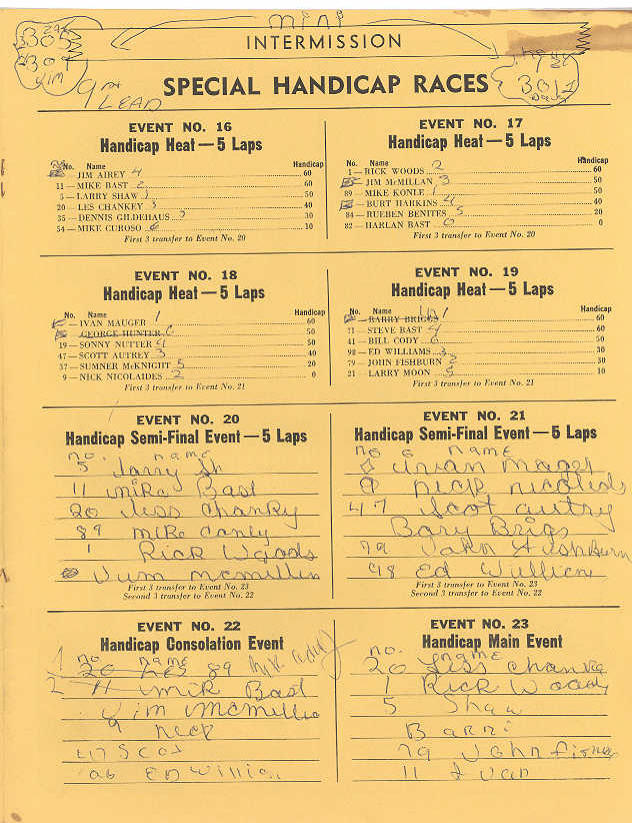 mini
INTERMISSION
SPECIAL HANDICAP RACES
LEAD
EVENT NO. 16
Handicap Heat — 5 Laps
No. Name Handicap
— JIM AIREY 4 60
11 — MIKE BAST 2 60
5 — LARRY SHAW 1 50
20 — LES CHANKEY 3 40
35 — DENNIS GILDEHAUS 5 30
54 — MIKE CUROSO 6 10
First 3 transfer to Event No. 20
EVENT NO. 17
Handicap Heat — 5 Laps
No. Name Handicap
1 — RICK WOODS 2 60
— JIM McMILLAN 3 50
89 — MIKE KONLE 1 50
— BURT HARKINS 4 40
84 — RUEBEN BENITES 5 20
82 — HARLAN BAST 6 0
First 3 transfer to Event No. 20
EVENT NO. 18
Handicap Heat — 5 Laps
No. Name Handicap
— IVAN MAUGER 1 60
— GEORGE HUNTER 6 50
19 — SONNY NUTTER 4 50
47 — SCOTT AUTREY 3 40
37 — SUMNER McKNIGHT 5 20
9 — NICK NICOLAIDES 2 0
First 3 transfer to Event No. 21
EVENT NO. 19
Handicap Heat — 5 Laps
No. Name Handicap
— BARRY BRIGGS 1 60
71 — STEVE BAST 4 60
41 — BILL CODY 6 50
98 — ED WILLIAMS 3 30
79 — JOHN FISHBURN 2 30
21 — LARRY MOON 5 10
First 3 transfer to Event No. 21
EVENT NO. 20
Handicap Semi-Final Event — 5 Laps
no. name
5 Larry Sh
11 mike Bast
20 less chanky
89 mike conley
1 Rick Woods
Jum mcmillin
First 3 transfer to Event No. 23
Second 3 transfer to Event No. 22
EVENT NO. 21
Handicap Semi-Final Event — 5 Laps
no name
Ivan Mager
9 nick nicolids
47 Scot autry
Bary Brigs
79 John Fishburn
98 Ed Willien
First 3 transfer to Event No. 23
Second 3 transfer to Event No. 22
EVENT NO. 22
Handicap Consolation Event
no name
1 20 Les 89
2 11 mik Bast
Jim mcmillin
9 neck
47 Scot
98 ED Willia
EVENT NO. 23
Handicap Main Event
no. name
20 Less chanke
1 Rick Woods
5 Shaw
Barri
79 John fishe
11 Ivan